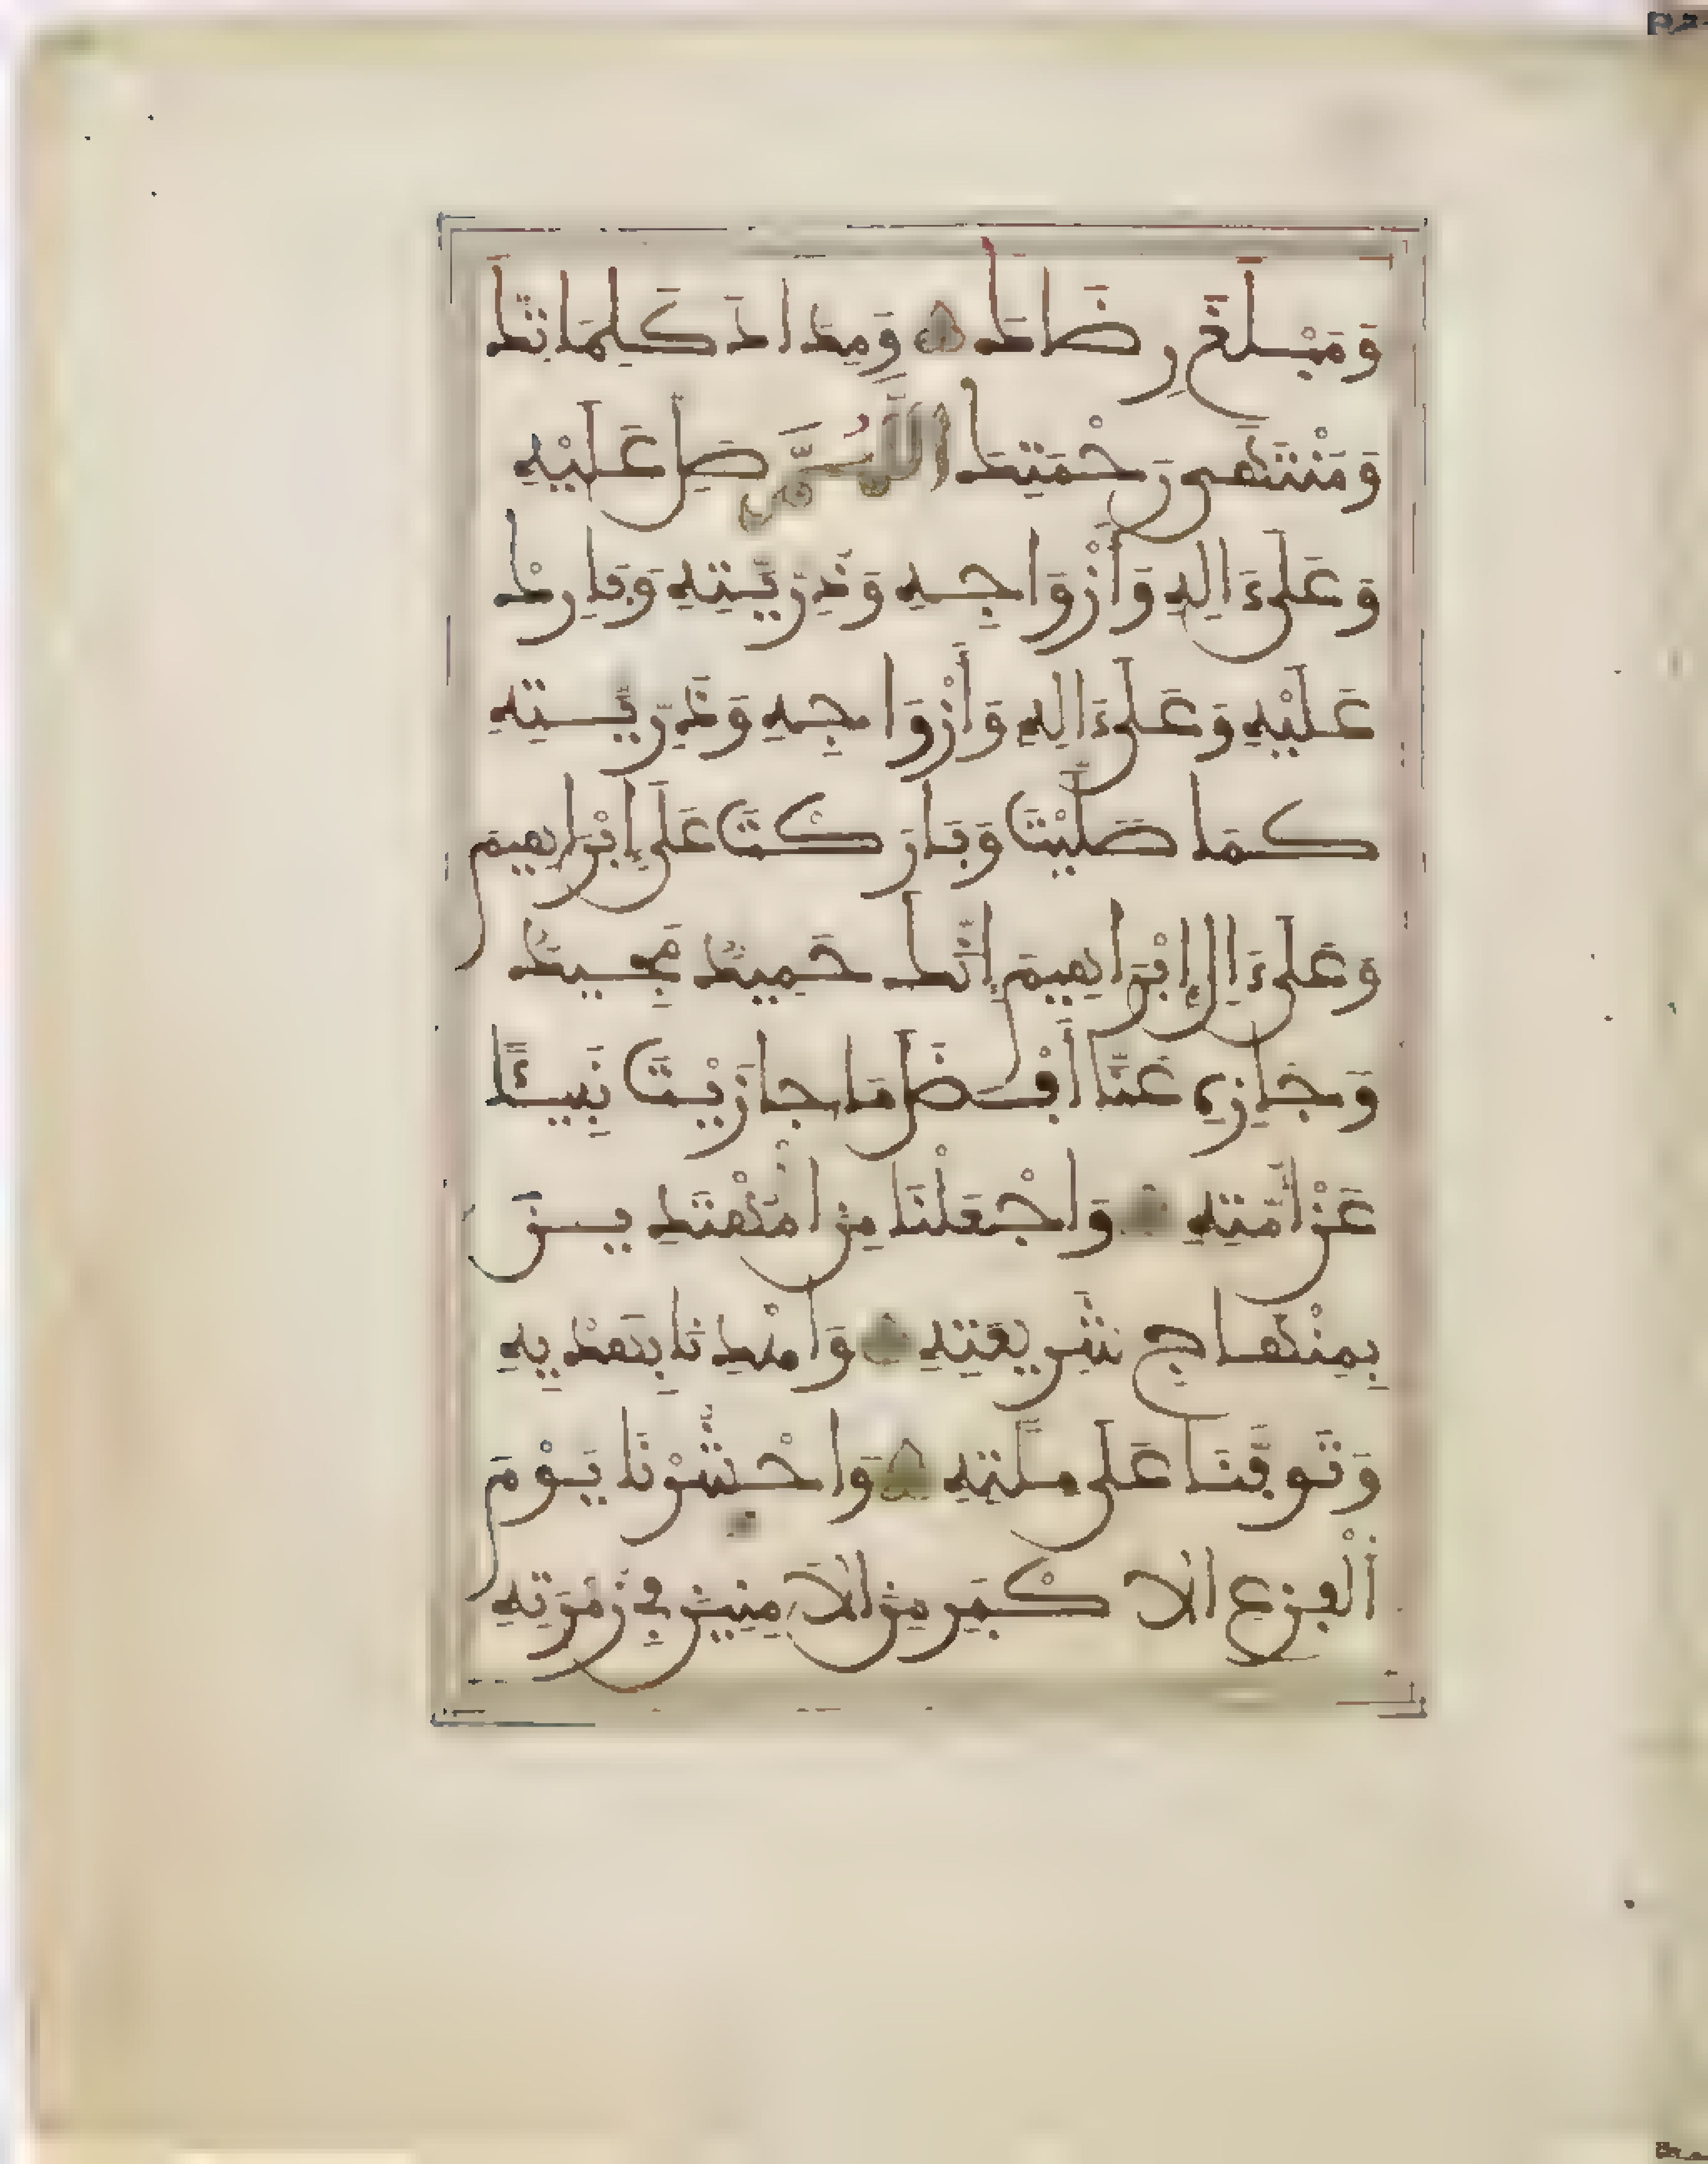 وَمَبْلَغَ رِضَاكَ وَمِدَادَ كَلِمَاتِكَ
وَمُنْتَهَى رَحْمَتِكَ اللَّهُمَّ صَلِّ عَلَيْهِ
وَعَلَىٰ ءَالِهِ وَأَزْوَاجِهِ وَذُرِّيَّتِهِ وَبَارِكْ
عَلَيْهِ وَعَلَىٰ ءَالِهِ وَأَزْوَاجِهِ وَذُرِّيَّتِهِ
كَمَا صَلَّيْتَ وَبَارَكْتَ عَلَى إِبْرَاهِيمَ
وَعَلَىٰ ءَالِ إِبْرَاهِيمَ إِنَّكَ حَمِيدٌ مَجِيدٌ
وَجَازِهِ عَنَّا أَفْضَلَ مَا جَازَيْتَ نَبِيئًا
عَنْ أُمَّتِهِ وَاجْعَلْنَا مِنَ الْمُهْتَدِينَ
بِمِنْهَاجِ شَرِيعَتِهِ وَاهْدِنَا بِهَدْيِهِ
وَتَوَفَّنَا عَلَى مِلَّتِهِ وَاحْشُرْنَا يَوْمَ
الْفَزَعِ الْأَكْبَرِ مِنَ الْآمِنِينَ فِي زُمْرَتِهِ